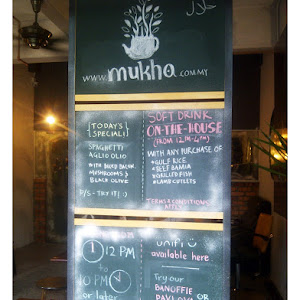 حلال
www.mukha.com.my
{TODAY'S
SPECIAL}
SPAGHETTI
AGLIO OLIO
WITH BAKED BACON,
MUSHROOMS &
BLACK OLIVE
P/S - TRY IT! :)
SOFT DRINK
ON-THE-HOUSE
(FROM 12PM-6PM)
WITH ANY PURCHASE OF
*GULF RICE
*BEEF BAMIA
*GRILLED FISH
*LAMB CUTLETS
TERMS & CONDITIONS
APPLY
12 PM
to
10 PM
or later
available here
Try our
BANOFFIE